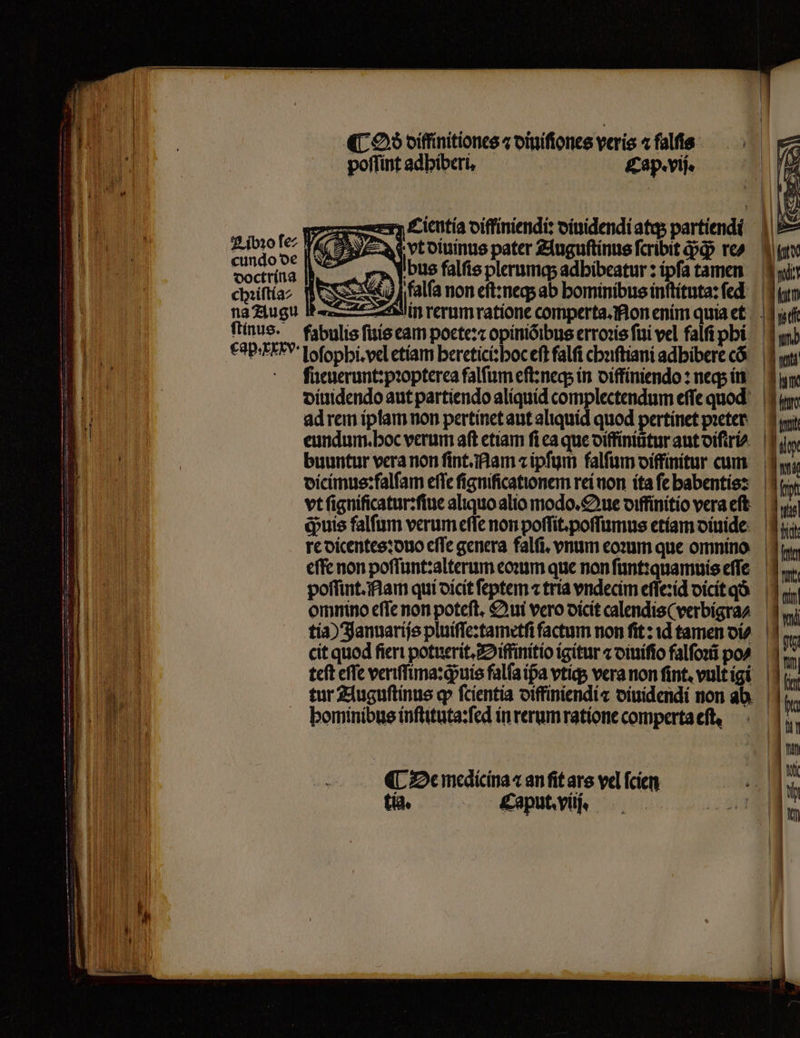 ¶ Qỏ diffinitiones ⁊ diuiſiones veris ⁊ falſis
poſſint adhiberi. Cap.vij.
Libꝛo ſe⸗
cundo de
doctrina
chꝛiſtia⸗
na Augu
ſtinus.
cap.xxxv.
Scientia diffiniendi: diuidendi atqꝫ partiendi
vt diuinus pater Auguſtinus ſcribit q̈ꝙ re⸗
bus falſis plerumqꝫ adhibeatur : ipſa tamen
falſa non eſt:neqꝫ ab hominibus inſtituta: ſed
in rerum ratione comperta. Non enim quia et
fabulis ſuis eam poete:⁊ opiniõibus erroꝛis ſui vel falſi phi
loſophi.vel etiam heretici:hoc eſt falſi chꝛiſtiani adhibere cõ
ſueuerunt:pꝛopterea falſum eſt:neqꝫ in diffiniendo : neqꝫ in
diuidendo aut partiendo aliquid complectendum eſſe quod
ad rem ipſam non pertinet aut aliquid quod pertinet pꝛeter
eundum.hoc verum aſt etiam ſi ea que diffiniũtur aut diſtri⸗
buuntur vera non ſint. Nam ⁊ ipſum falſum diffinitur cum
dicimus:falſam eſſe ſignificationem rei non ita ſe habentis:
vt ſignificatur:ſiue aliquo alio modo. Que diffinitio vera eſt
q̈ꝙuis falſum verum eſſe non poſſit.poſſumus etiam diuide
re dicentes:duo eſſe genera falſi. vnum eoꝛum que omnino
eſſe non poſſunt:alterum eoꝛum que non ſunt:quamuis eſſe
poſſint. Nam qui dicit ſeptem ⁊ tria vndecim eſſe:id dicit qỏ
omnino eſſe non poteſt. Qui vero dicit calendis(verbigra⸗
tia) Januarijs pluiſſe:tametſi factum non ſit : id tamen di⸗
cit quod fieri potuerit. Diffinitio igitur ⁊ diuiſio falſoꝛũ po⸗
teſt eſſe veriſſima:q̈ꝙuis falſa ip̃a vtiqꝫ vera non ſint. vult igi
tur Auguſtinus ꝙ ſcientia diffiniendi ⁊ diuidendi non ab
hominibus inſtituta:ſed in rerum ratione comperta eſt.
¶ De medicina ⁊ an ſit ars vel ſcien
tia. Caput.viij.